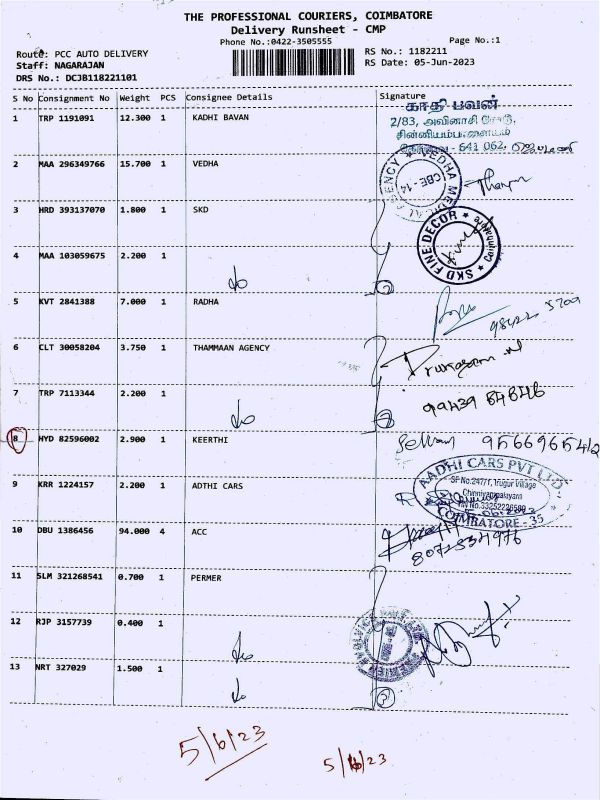 THE PROFESSIONAL COURIERS, COIMBATORE
Delivery Runsheet - CMP
Phone No.:0422-3505555
Page No.:1
Route: PCC AUTO DELIVERY
RS No.: 1182211
Staff: NAGARAJAN
RS Date: 05-Jun-2023
DRS No.: DCJB118221101
S No Consignment No Weight PCS Consignee Details Signature
1 TRP 1191091 12.300 1 KADHI BAVAN
காதி பவன்
2/83, அவினாசி ரோடு,
சின்னியம்பாளையம்
கோவை - 641 062.
2 MAA 296349766 15.700 1 VEDHA
VEDHA MEDICAL AGENCY
CBE - 14
3 HRD 393137070 1.800 1 SKD
SKD FINE DECOR
Coimbatore
4 MAA 103059675 2.200 1
5 KVT 2841388 7.000 1 RADHA
98422 5709
6 CLT 30058204 3.750 1 THAMMAAN AGENCY
7 TRP 7113344 2.200 1
99439 64646
8 HYD 82596002 2.900 1 KEERTHI
Selvam 9566965412
9 KRR 1224157 2.200 1 ADTHI CARS
AADHI CARS PVT LTD
SF No.247/1, Irugur Village
Chinniyampalayam
COIMBATORE - 35
10 DBU 1386456 94.000 4 ACC
8071334976
11 SLM 321268541 0.700 1 PERMER
12 RJP 3157739 0.400 1
13 NRT 327029 1.500 1
5/6/23
5/6/23